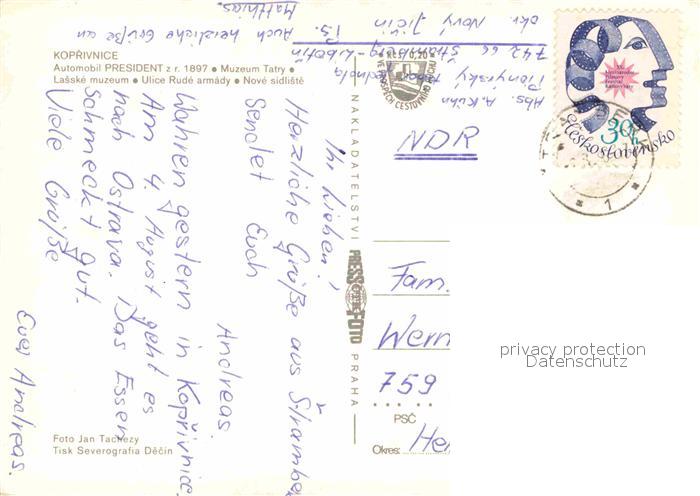 KOPŘIVNICE
Automobil PRESIDENT z r. 1897 ● Muzeum Tatry ●
Lašské muzeum ● Ulice Rudé armády ● Nové sídliště
Ihr Lieben!
Herzliche Grüße aus Štramberk
Sendet Euch
Andreas.
Wahren gestern in Kopřivnice.
Am 4. August geht es
nach Ostrava. Das Essen
schmeckt gut.
Viele Grüße
Euer Andreas.
Ps.
Auch herzliche Grüße an
Matthias.
Abs. A. Kühn
Pionýrský
742 66 Štramberg-Libotín
okr. Nový Jičín
Foto Jan Tachezy
Tisk Severografia Děčín
NAKLADATELSTVÍ
PRESSFOTO
PRAHA
30h
Československo
1
NDR
Fam.
Wern
759
PSČ
Okres: He
privacy protection
Datenschutz